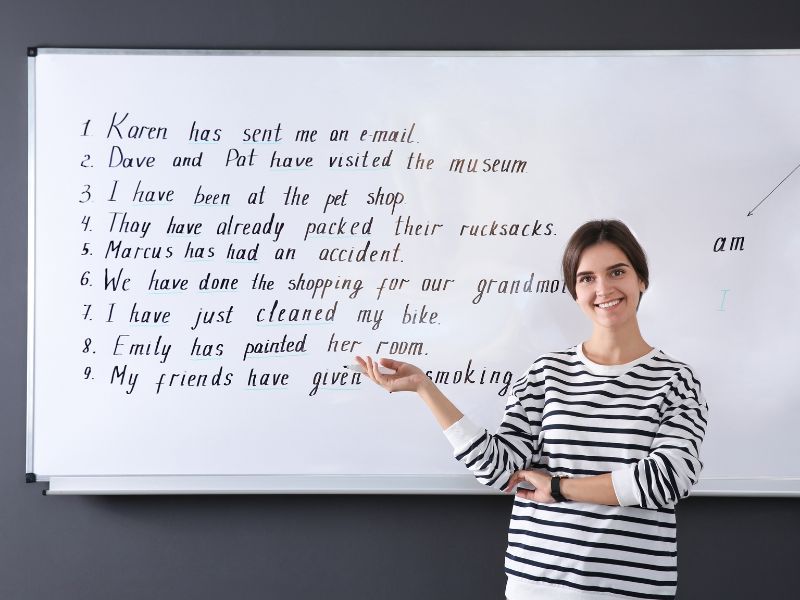 1. Karen has sent me an e-mail.
2. Dave and Pat have visited the museum
3 I have been at the pet shop.
4. Thay have already packed their rucksacks.
5. Marcus has had an accident.
6. We have done the shopping for our
7. I have just cleaned my bike.
8. Emily has painted her room.
9. My friends have given smoking.
am
I